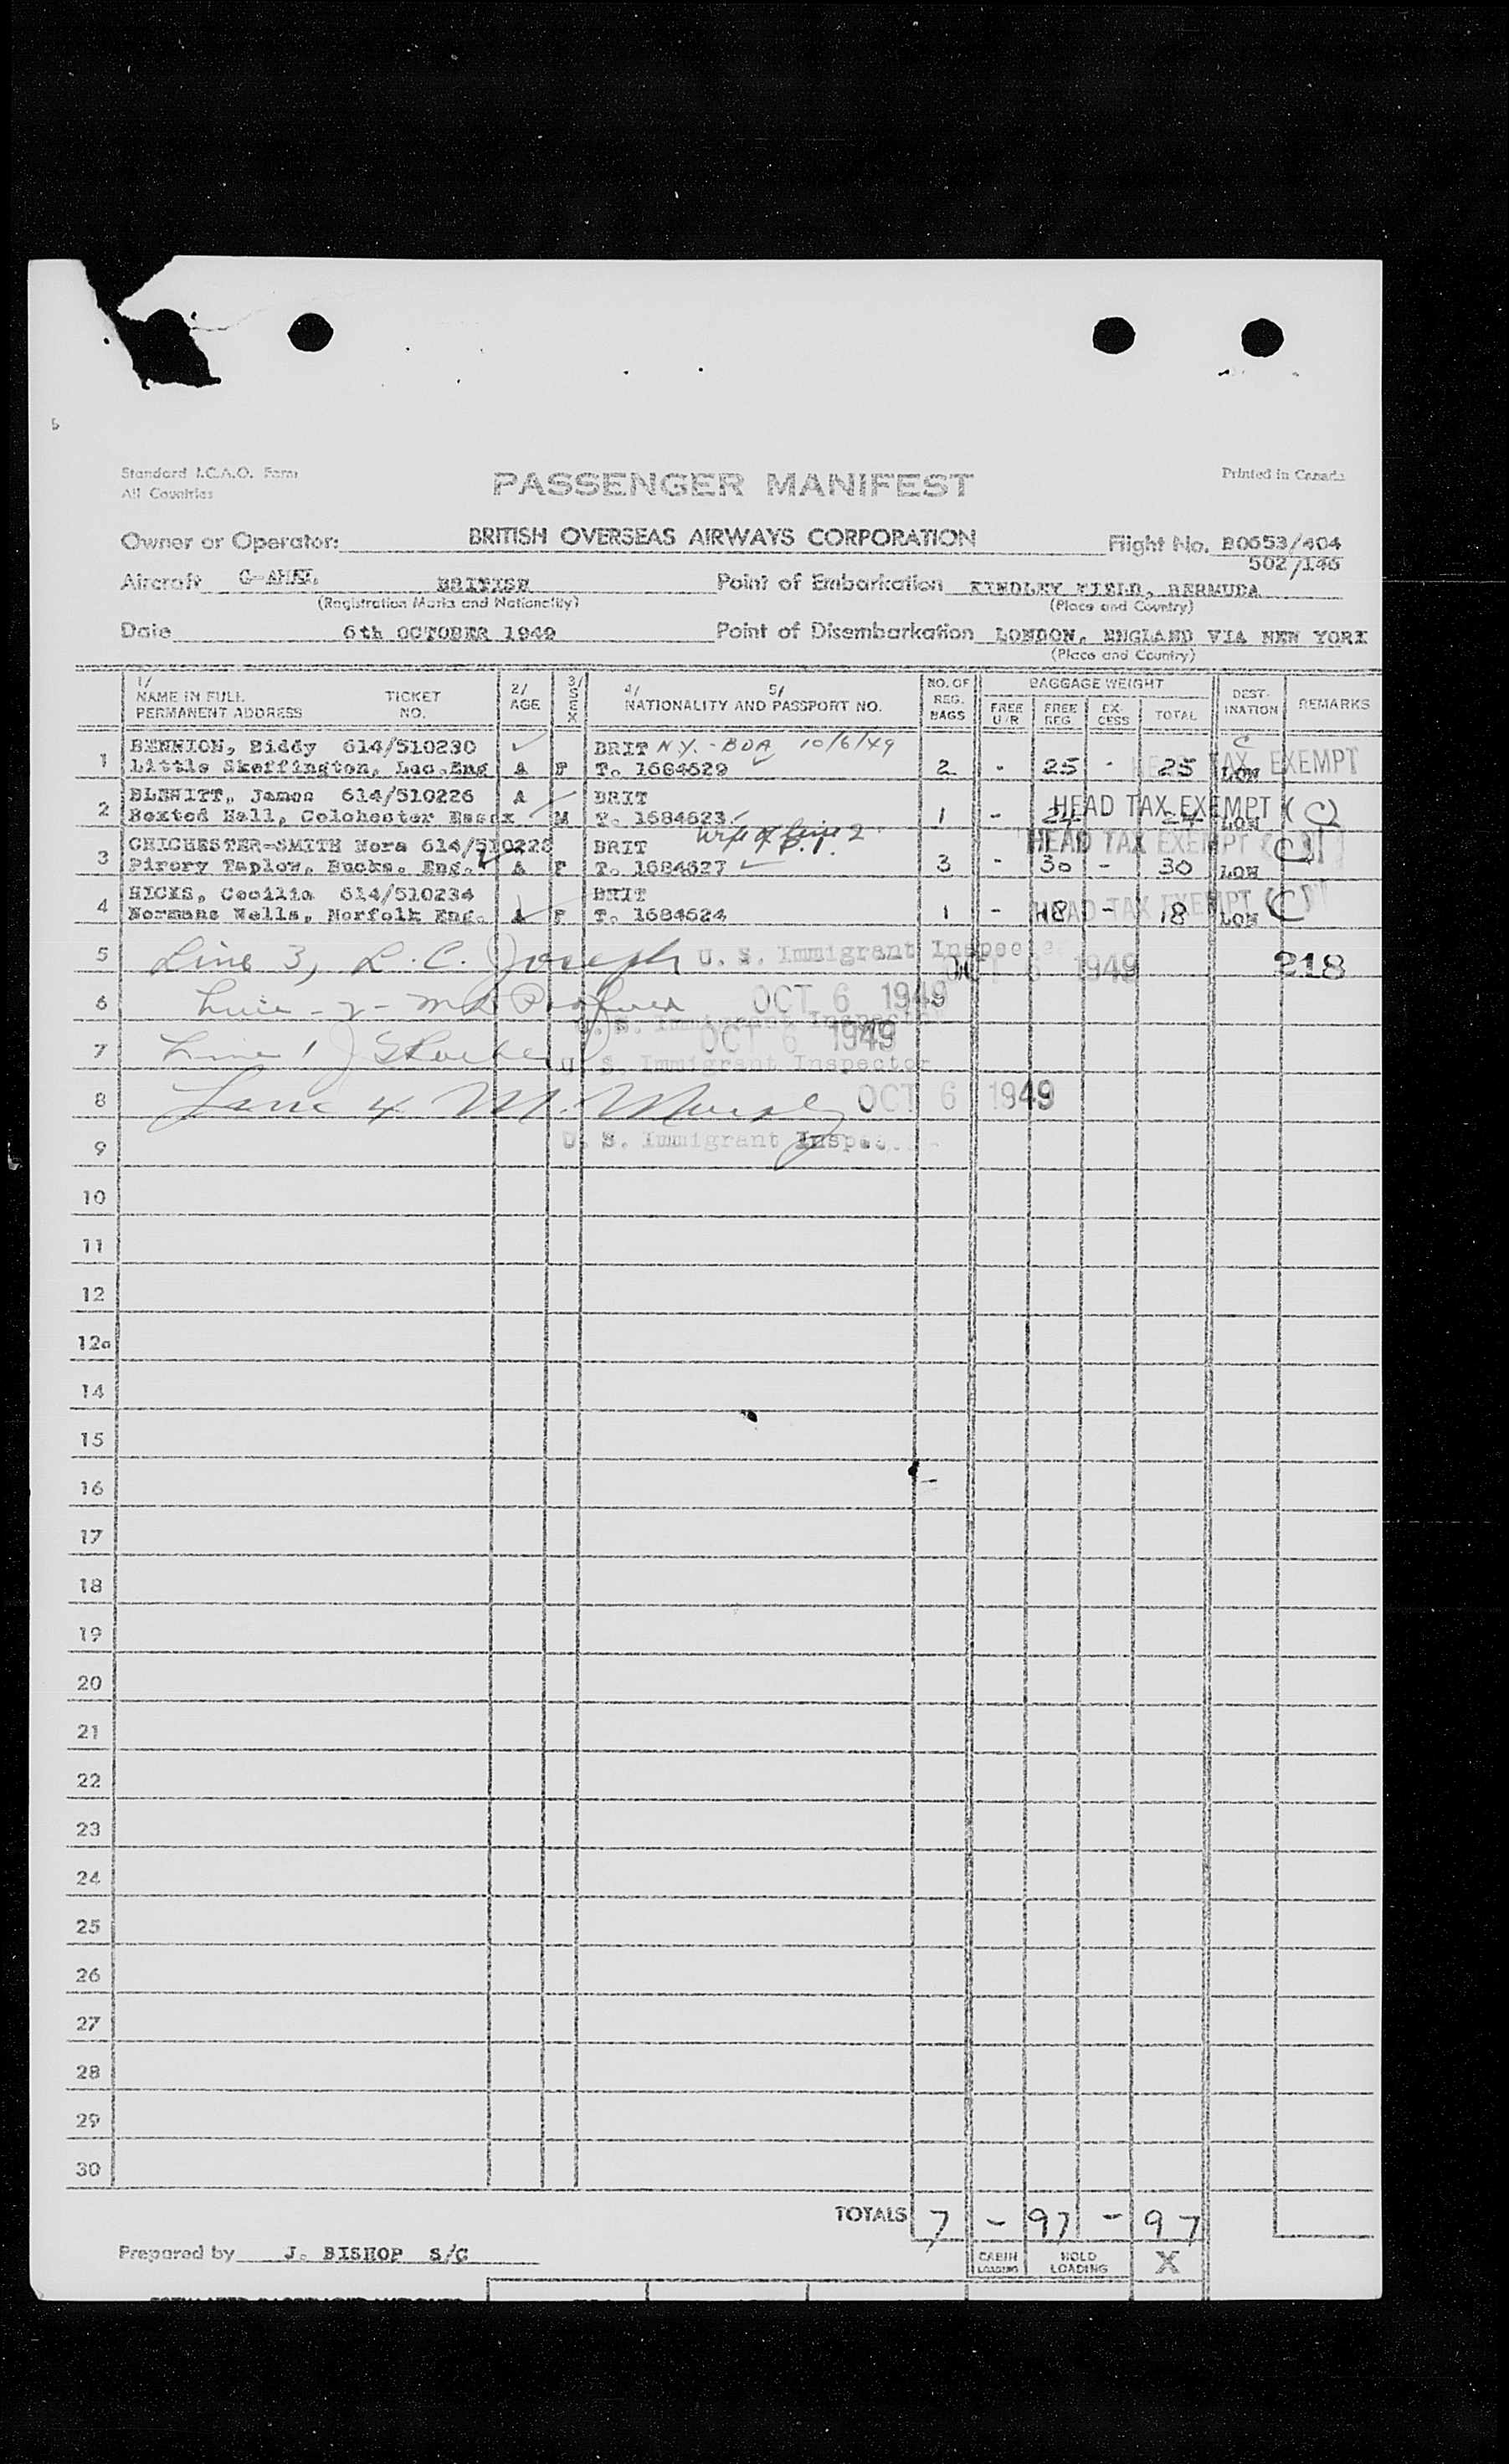 Standard I.C.A.O. Form
All Countries
PASSENGER MANIFEST
Printed in Canada
Owner or Operator: BRITISH OVERSEAS AIRWAYS CORPORATION Flight No. B0653/404
502/146
Aircraft BRITISH Point of Embarkation KINDLEY FIELD, BERMUDA
(Registration Marks and Nationality) (Place and Country)
Date 6th OCTOBER 1949 Point of Disembarkation LONDON, ENGLAND VIA NEW YORK
(Place and Country)
1/ NAME IN FULL PERMANENT ADDRESS TICKET NO. 2/ AGE 3/ SEX 4/ 5/ NATIONALITY AND PASSPORT NO. NO. OF REG. BAGS BAGGAGE WEIGHT FREE U/R FREE REG. EX-CESS TOTAL DEST-INATION REMARKS
1 BENNION, Biddy 614/510230 BRIT N.Y. - BDA 10/6/49 C
Little Skeffington, Lec.Eng A F T. 1684629 2 - 25 - 25 LON TAX EXEMPT
2 BLEWITT, James 614/510226 A BRIT
Boxted Hall, Colchester Essex M T. 1684623 1 - 24 - 24 LON HEAD TAX EXEMPT (C)
3 CHICHESTER-SMITH Nora 614/510228 BRIT Wife of line 2 HEAD TAX EXEMPT (C)
Pirory Taplow, Bucks. Eng. A F T. 1684627 3 - 30 - 30 LON
4 HICKS, Cecilia 614/510234 BRIT
Normans Wells, Norfolk Eng. A F T. 1684624 1 - 18 - 18 LON HEAD TAX EXEMPT (C)
5 Line 3, L. C. Joseph U. S. Immigrant Inspector OCT 6 1949 218
6 Line - 2 - OCT 6 1949
U. S. Immigrant Inspector
7 Line 1 OCT 6 1949
U. S. Immigrant Inspector
8 Line 4 M. OCT 6 1949
9 U. S. Immigrant Inspec
10
11
12
12a
14
15
16
17
18
19
20
21
22
23
24
25
26
27
28
29
30
TOTALS 7 - 97 - 97
Prepared by J. BISHOP S/C CABIN LOADING HOLD LOADING X